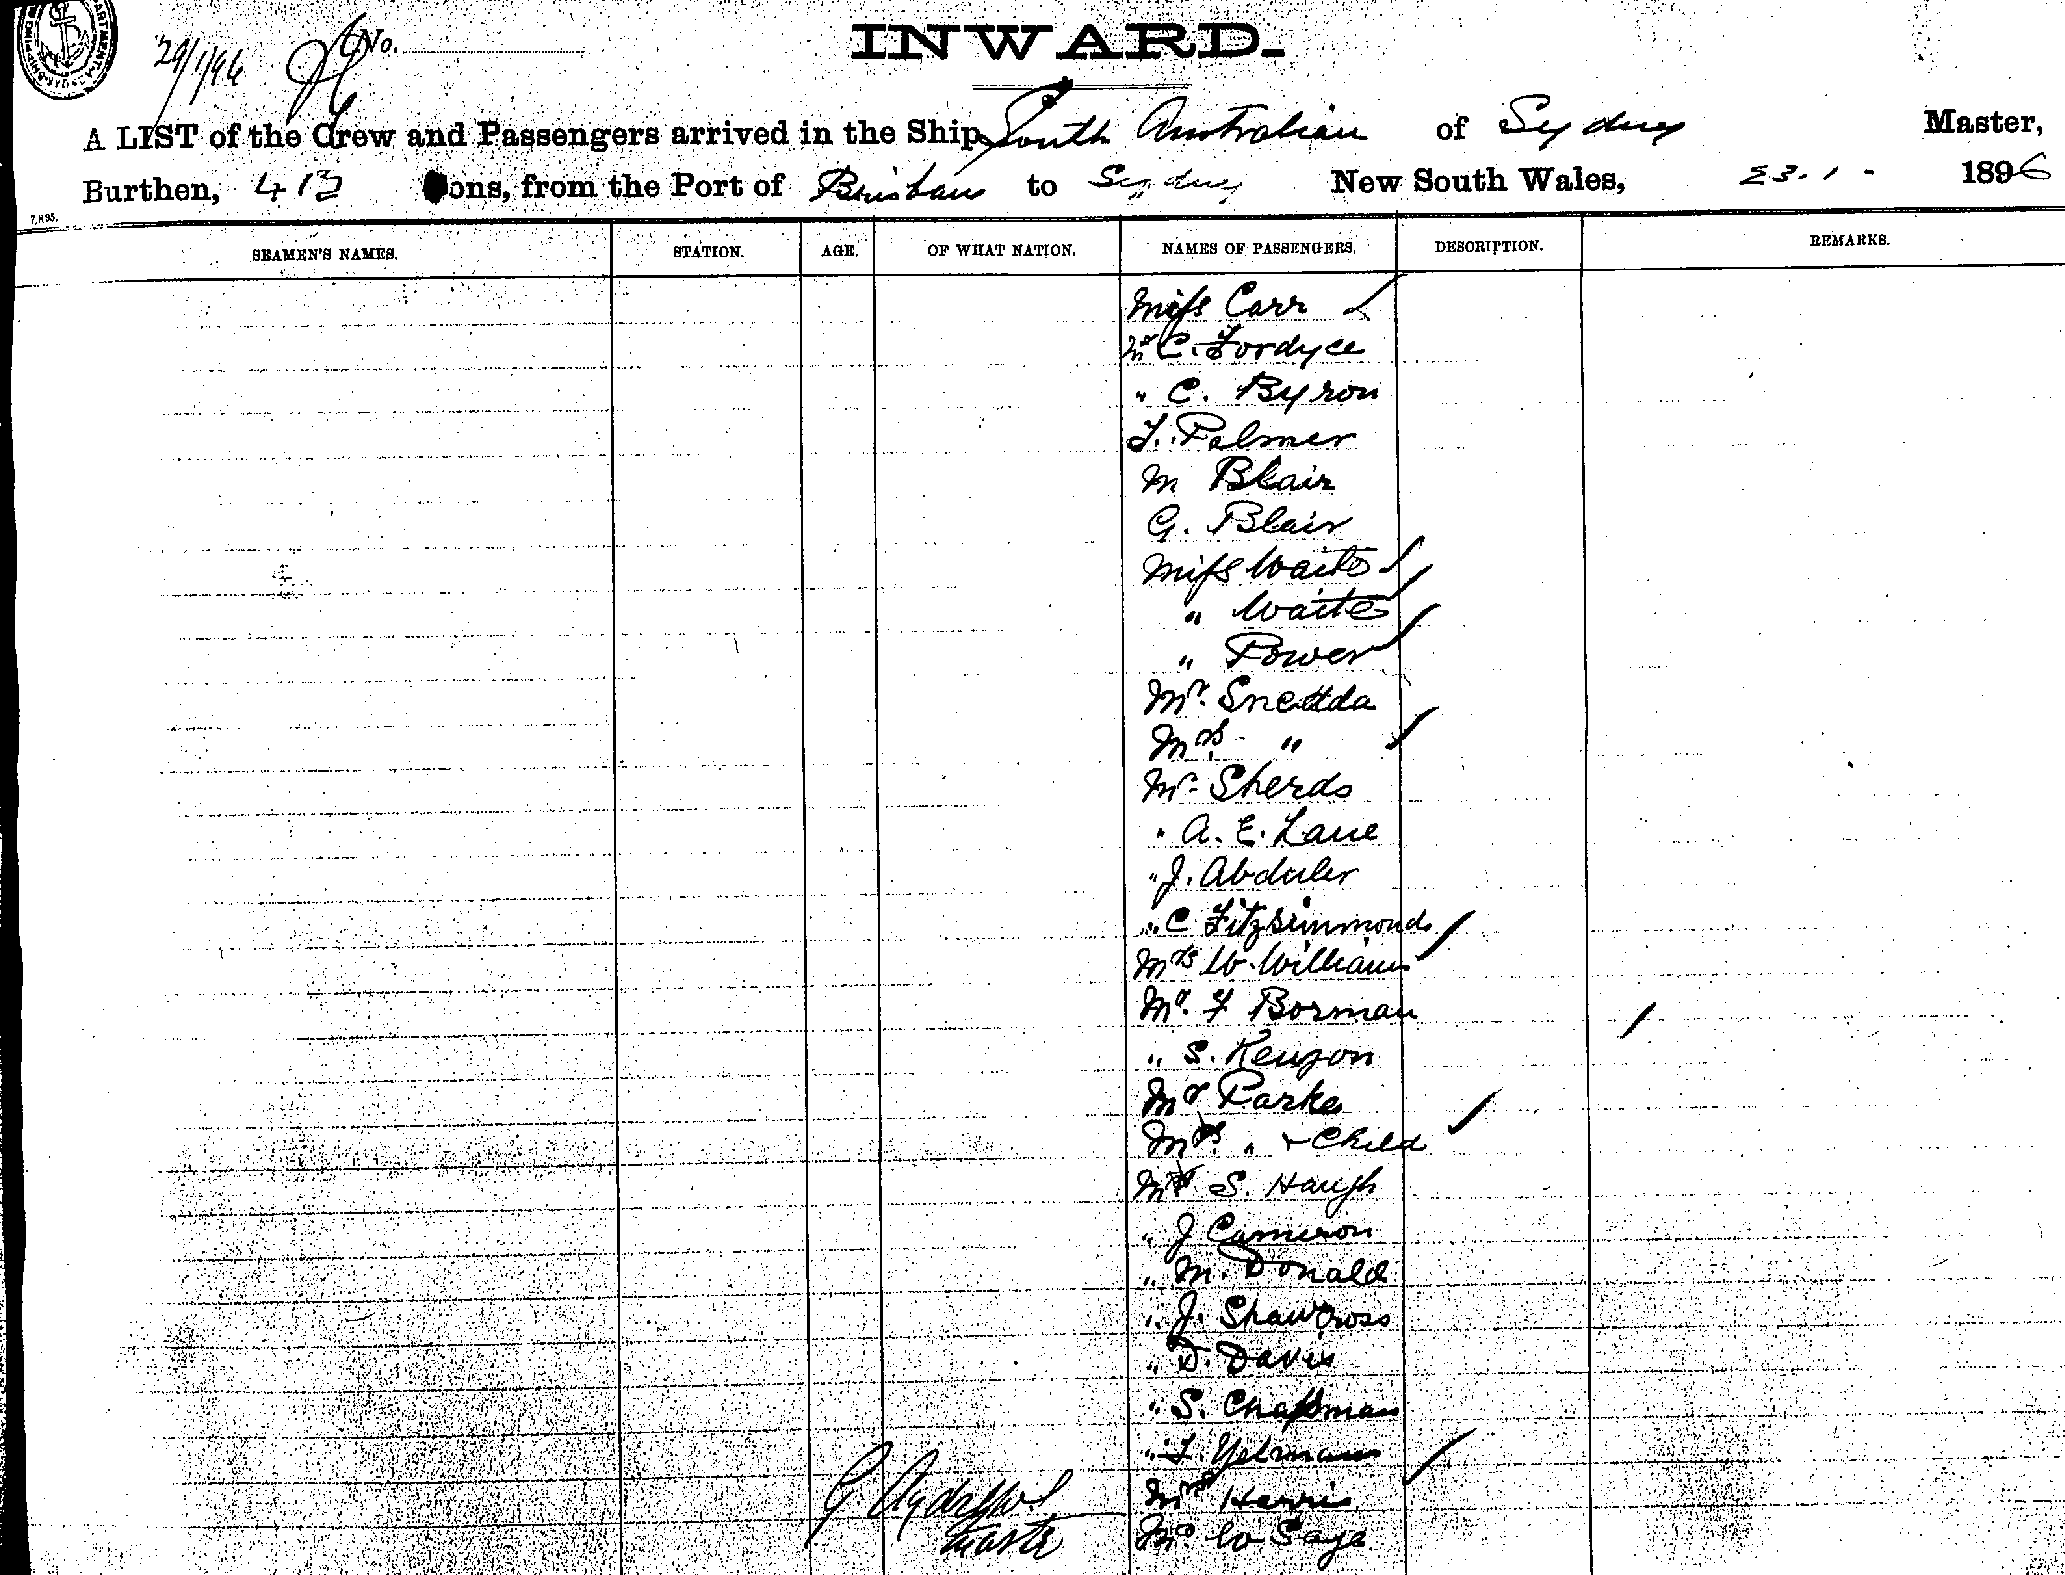 29/1/96
No.
INWARD.
A LIST of the Crew and Passengers arrived in the Ship South Australian of Sydney Master,
Burthen, 413 Tons, from the Port of Brisbane to Sydney New South Wales, 23.1. 1896
SEAMEN'S NAMES. STATION. AGE. OF WHAT NATION. NAMES OF PASSENGERS. DESCRIPTION. REMARKS.
Miss Carr
Mr C. Fordyce
" C. Byron
F. Palmer
M Blair
G. Blair
Miss Waite
" Waite
" Power
Mr. Snedda
Mrs. "
Mr. Sherds
" A. E. Lane
" J. Abduler
" C Fitzsimmonds
Mrs W. Williams
Mr. F Borman
" S. Kenyon
Mr Parke
Mrs. " + Child
Mr S. Haugh
" J Cameron
" M. Donald
" J. Shawcross
" D. Davis
" S. Chapman
" Yelman
Harris
Mr. W Sage
Master